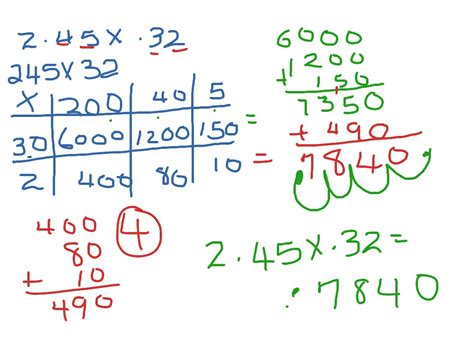 2.45 x .32
245 x 32
x 200 40 5
30 6000 1200 150 =
2 400 80 10 =
400
80
+ 10
490
4
6000
+1200
+ 150
7350
+ 490
7840
2.45 x .32 =
.7840